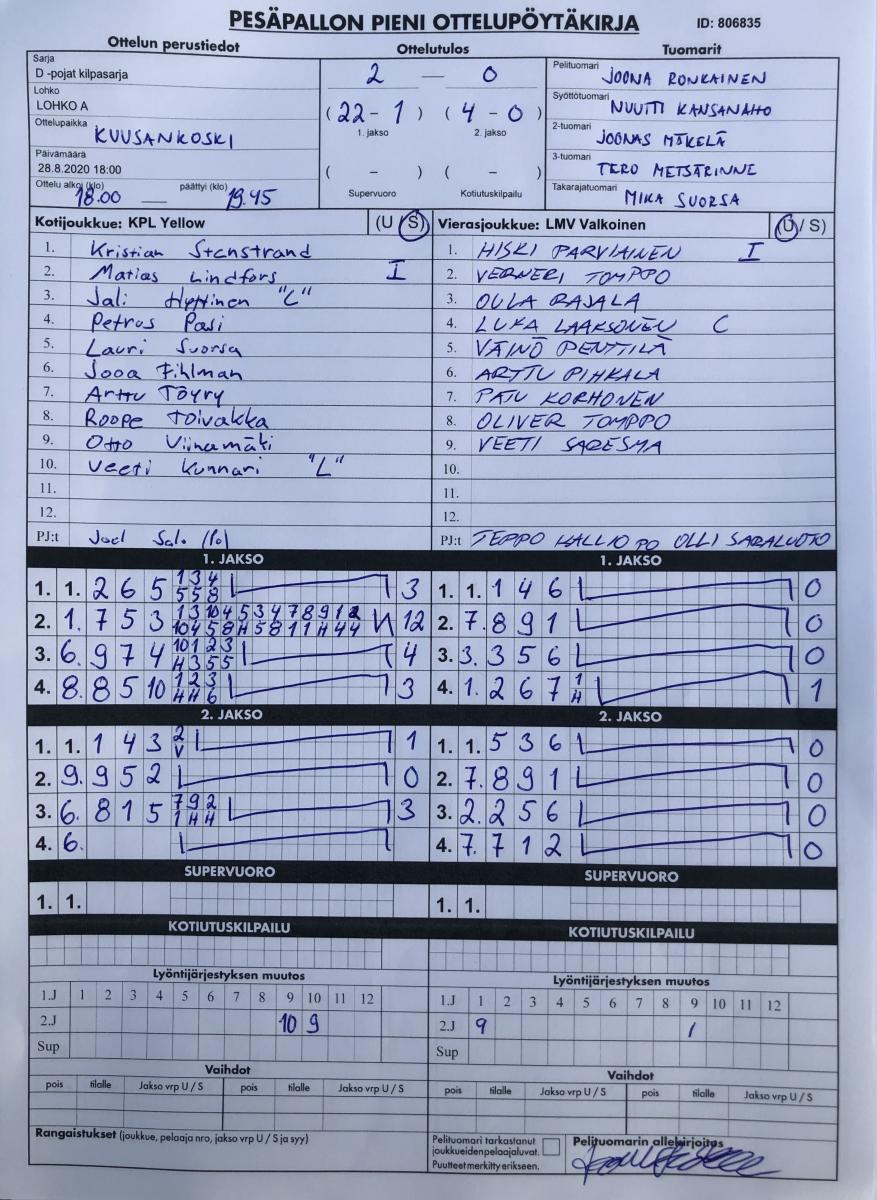 PESÄPALLON PIENI OTTELUPÖYTÄKIRJA ID: 806835
Ottelun perustiedot Ottelutulos Tuomarit
Sarja
D -pojat kilpasarja
Lohko
LOHKO A
Ottelupaikka KUUSANKOSKI
Päivämäärä
28.8.2020 18:00
Ottelu alkoi (klo) päättyi (klo)
18.00 — 19.45
2 — 0
( 22 - 1 ) ( 4 - 0 )
1. jakso 2. jakso
( - ) ( - )
Supervuoro Kotiutuskilpailu
Pelituomari JOONA RONKAINEN
Syöttötuomari NUUTTI KANSANAHO
2-tuomari JOONAS MÄKELÄ
3-tuomari TERO METSÄRINNE
Takarajatuomari MIKA SUORSA
Kotijoukkue: KPL Yellow (U / S)
1. Kristian Stenstrand
2. Matias Lindfors I
3. Jali Hyttinen "C"
4. Petrus Pasi
5. Lauri Suorsa
6. Jooa Fihlman
7. Arttu Töyry
8. Roope Toivakka
9. Otto Viinamäki
10. Veeti Kunnari "L"
11.
12.
PJ:t Joel Salo (Po)
Vierasjoukkue: LMV Valkoinen (U / S)
1. HISKI PARVIAINEN I
2. VERNERI TOMPPO
3. OULA RAJALA
4. LUKA LAAKSONEN C
5. VÄINÖ PENTTILÄ
6. ARTTU PIHKALA
7. PATU KORHONEN
8. OLIVER TOMPPO
9. VEETI SARESMA
10.
11.
12.
PJ:t TEPPO KALLIO PO OLLI SARALUOTO
1. JAKSO
1. 1. 2 6 5 1 3 4 3
5 5 8
2. 1. 7 5 3 1 3 10 4 5 3 4 7 8 9 1 2 12
10 4 5 8 H 5 8 1 1 H 4 4
3. 6. 9 7 4 10 1 2 3 4
H 3 5 5
4. 8. 8 5 10 1 2 3 3
H H 6
1. JAKSO
1. 1. 1 4 6 0
2. 7. 8 9 1 0
3. 3. 3 5 6 0
4. 1. 2 6 7 1 1
H
2. JAKSO
1. 1. 1 4 3 2 1
V
2. 9. 9 5 2 0
3. 6. 8 1 5 7 9 2 3
1 H H
4. 6.
2. JAKSO
1. 1. 5 3 6 0
2. 7. 8 9 1 0
3. 2. 2 5 6 0
4. 7. 7 1 2 0
SUPERVUORO
1. 1.
SUPERVUORO
1. 1.
KOTIUTUSKILPAILU
KOTIUTUSKILPAILU
Lyöntijärjestyksen muutos
1.J 1 2 3 4 5 6 7 8 9 10 11 12
2.J 10 9
Sup
Lyöntijärjestyksen muutos
1.J 1 2 3 4 5 6 7 8 9 10 11 12
2.J 9 1
Sup
Vaihdot
pois tilalle Jakso vrp U / S pois tilalle Jakso vrp U / S
Vaihdot
pois tilalle Jakso vrp U / S pois tilalle Jakso vrp U / S
Rangaistukset (joukkue, pelaaja nro, jakso vrp U / S ja syy)
Pelituomari tarkastanut
joukkueiden pelaajaluvat.
Puutteet merkitty erikseen.
Pelituomarin allekirjoitus